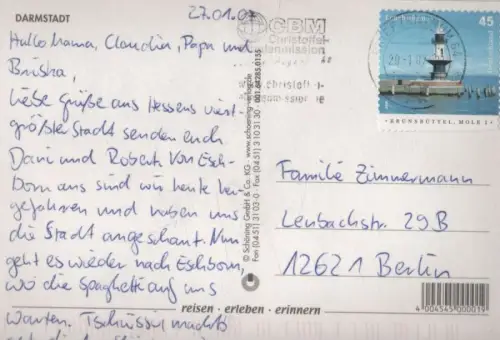 DARMSTADT
27.01.0
Hallo Mama, Claudia, Papa und
Brisha,
liebe Grüße aus Hessens viert-
größter Stadt senden euch
Dani und Robert. Von Esch-
born aus sind wir heute her-
gefahren und haben uns
die Stadt angeschaut. Nun
geht es wieder nach Eschborn,
wo die Spaghetti auf uns
warten. Tschüssi machts
CBM
Christoffel-
Blindenmission
www.christoffel-
© Schöning GmbH & Co. KG • www.schoening-verlag.de
Fax (0451) 3 10 3-0 • Fax (0451) 3103130 001 64285 0155
Leuchttürme
45
BRUNSBÜTTEL, MOLE 1
Familie Zimmermann
Lenbachstr. 29B
12621 Berlin
reisen • erleben • erinnern
4 004545 000019